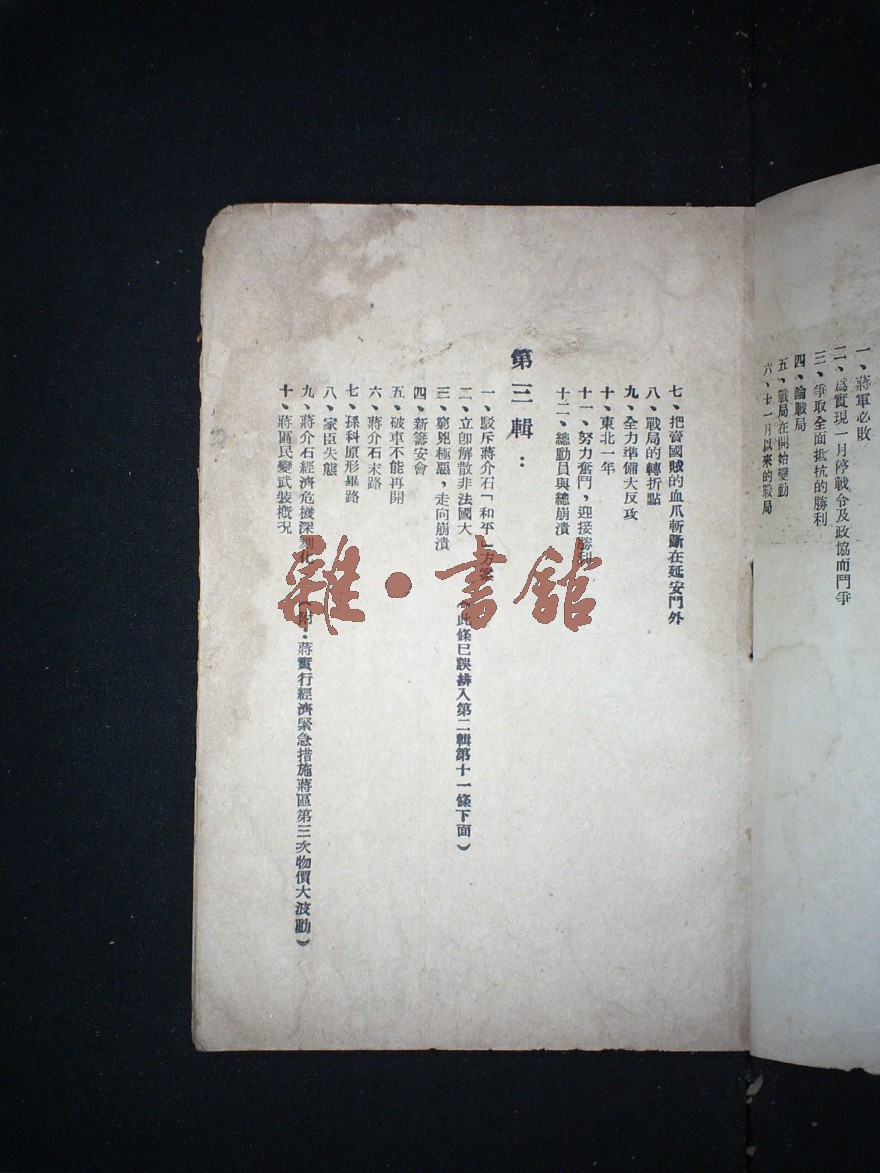 一、蔣軍必敗
二、爲實現一月停戰令及政協而鬥爭
三、爭取全面抵抗的勝利
四、論戰局
五、戰局在開始變動
六、十一月以來的戰局
七、把賣國賊的血爪斬斷在延安門外
八、戰局的轉折點
九、全力準備大反攻
十、東北一年
十一、努力奮鬥，迎接勝利
十二、總動員與總崩潰
第三輯：
一、駁斥蔣介石「和平」方案
二、立卽解散非法國大 （此條已誤排入第二輯第十一條下面）
三、窮兇極惡，走向崩潰
四、新籌安會
五、破車不能再開
六、蔣介石末路
七、孫科原形畢路
八、家臣失態
九、蔣介石經濟危機深刻化 （附：蔣實行經濟緊急措施蔣區第三次物價大波動）
十、蔣區民變武裝槪況
雜·書館